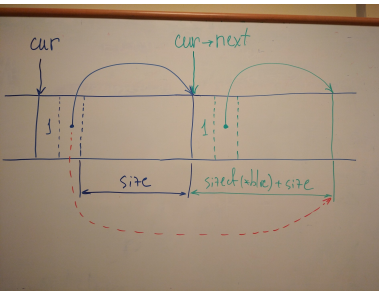 cur
cur→next
1
1
size
sizeof(*able)+size